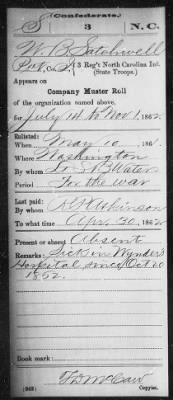 (Confederate.)
S 3 N.C.
W. B. Satchwell
Pvt., Co. I, 3 Reg't North Carolina Inf.
(State Troops.)
Appears on
Company Muster Roll
of the organization named above,
for July 1st to Nov 1, 1862.
Enlisted:
When May 10, 1861.
Where Washington
By whom
Period For the war
Last paid:
By whom
To what time Apr. 30, 1862
Present or absent Absent
Remarks: Sick in Wynder's
Hospital since Oct 20
1862.
Book mark:
(642) Copyist.